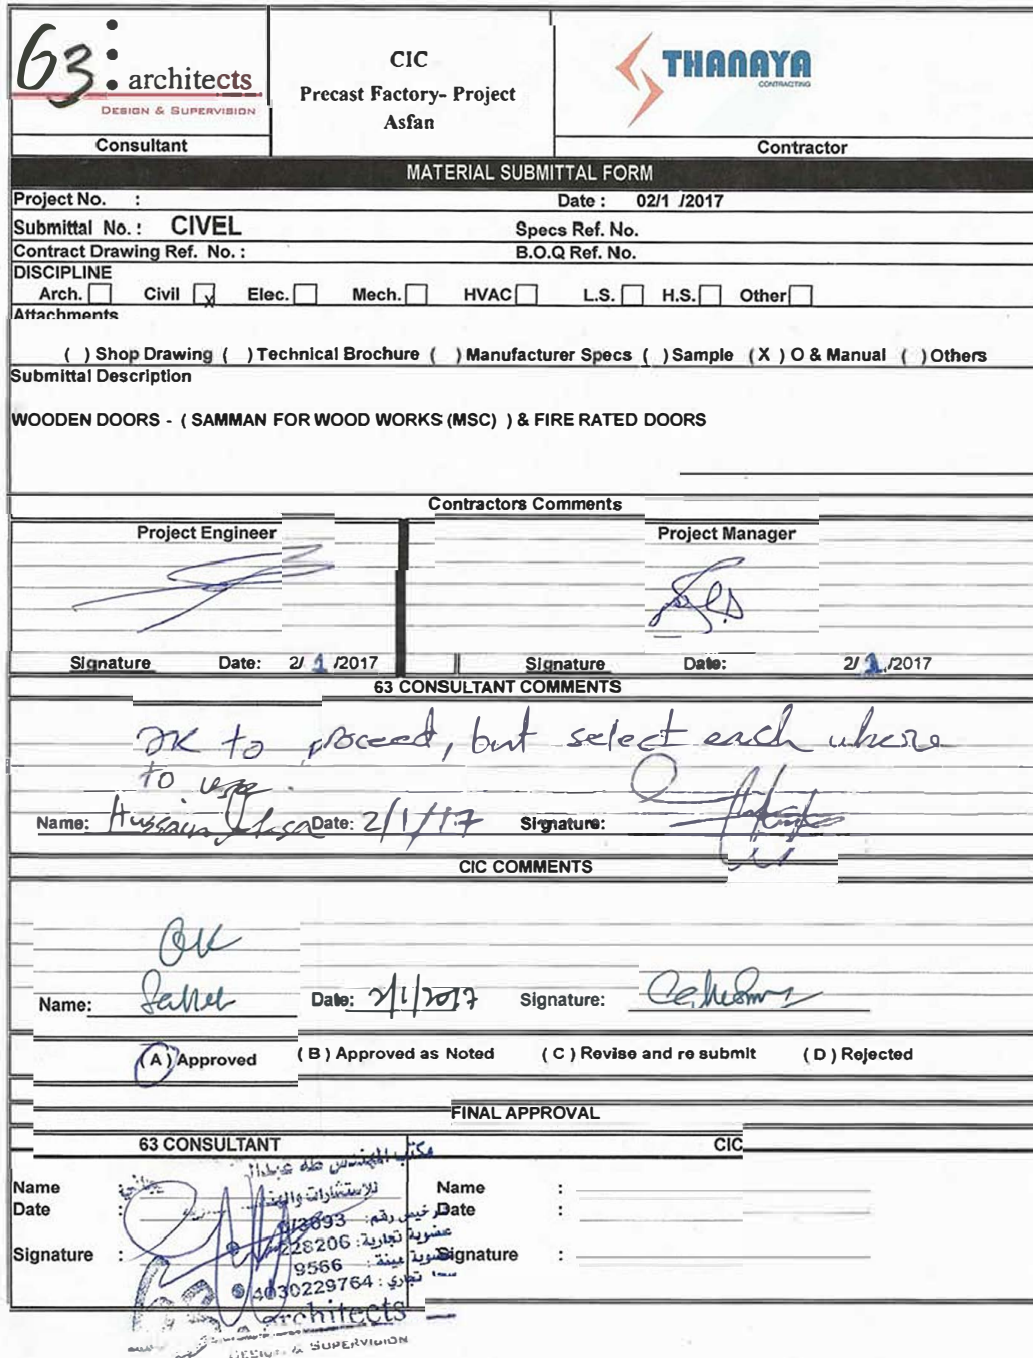 63 architects
DESIGN & SUPERVISION
Consultant
CIC
Precast Factory- Project
Asfan
THANAYA
CONTRACTING
Contractor
MATERIAL SUBMITTAL FORM
Project No. : Date : 02/1 /2017
Submittal No. : CIVEL Specs Ref. No.
Contract Drawing Ref. No. : B.O.Q Ref. No.
DISCIPLINE
Arch. Civil x Elec. Mech. HVAC L.S. H.S. Other
Attachments
( ) Shop Drawing ( ) Technical Brochure ( ) Manufacturer Specs ( ) Sample (X ) O & Manual ( ) Others
Submittal Description
WOODEN DOORS - ( SAMMAN FOR WOOD WORKS (MSC) ) & FIRE RATED DOORS
Contractors Comments
Project Engineer Project Manager
Signature Date: 2/ 1 /2017 Signature Date: 2/ 1 /2017
63 CONSULTANT COMMENTS
OK to proceed, but select each where
to use.
Name: Hussain Date: 2/1/17 Signature:
CIC COMMENTS
OK
Name: Date: 2/1/2017 Signature:
(A) Approved ( B ) Approved as Noted ( C ) Revise and re submit ( D ) Rejected
FINAL APPROVAL
63 CONSULTANT CIC
مكتب المهندس طه عبدالله
Name Name :
للإستشارات
Date : Date :
رخيص رقم: 3693
عضوية تجارية: 228206
Signature : Signature :
عضوية مهنية: 9566
تجاري: 4030229764
63 architects
DESIGN & SUPERVISION